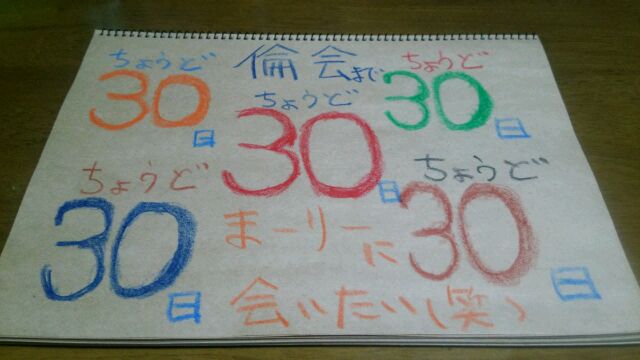 倫会まで
ちょうど
30日
ちょうど
30日
ちょうど
30日
ちょうど
30日
ちょうど
30日
まーリーに
会いたい(笑)